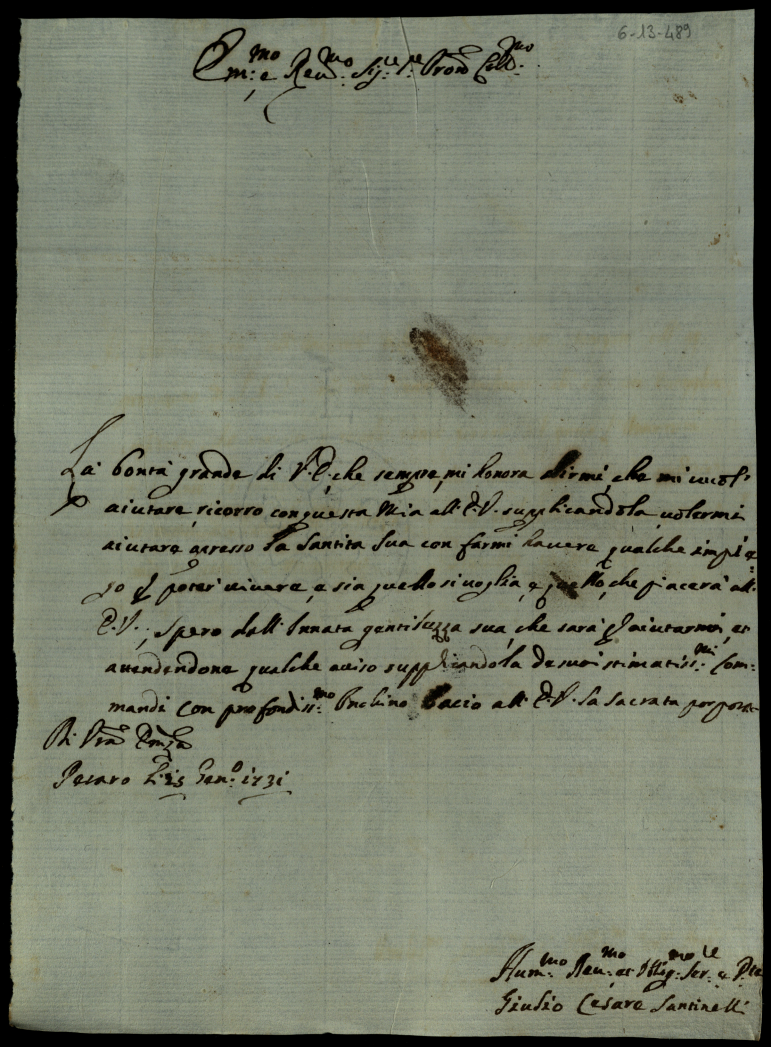 6-13-489
Em:mo e Reu:mo Sig:re Sig:re Pron Coll:mo
La bontà grande di V. E. che sempre mi honora dirmi, che mi uuol
aiutare, ricorro con questa Mia all'E. V. supplicandola uolermi
aiutare apresso la Santita Sua con farmi hauere qualche impie
go p poter uiuere, e sia quello si uoglia, e quello, che piacerà all'
E. V., spero dall'Innata gentilezza sua, che sarà p aiutarmi, et
attendendone qualche auiso supplicandola de suoi stimatiss:mi Com:
mandi con profondiss:mo Inchino bacio all'E. V. la sacrata porpora
Di Vra Emza
Pesaro Li 25 Gen:o 1731
Hum:mo Reu:mo et Oblig:mo Ser:re e
Giulio Cesare Santinelli